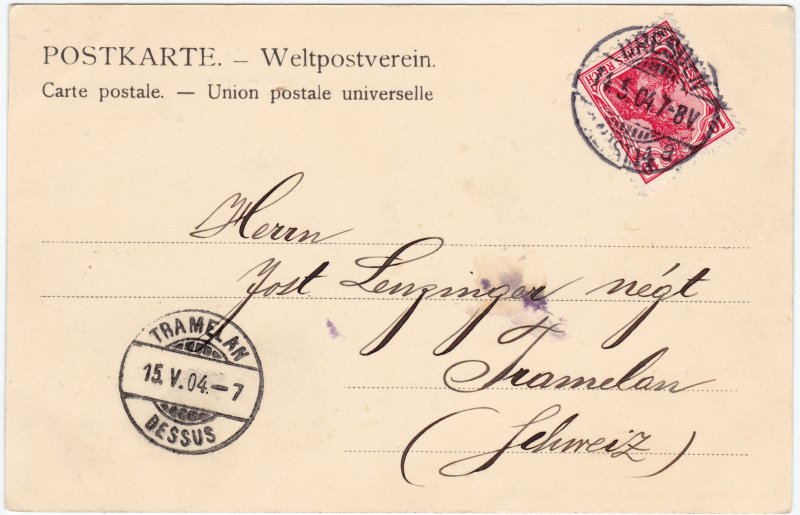 POSTKARTE. – Weltpostverein.
Carte postale. — Union postale universelle
REICH
5.04.7-8V.
Herrn
Jost Lenzinger négt
Tramelan
(Schweiz)
TRAMELAN
15. V. 04. – 7
DESSUS